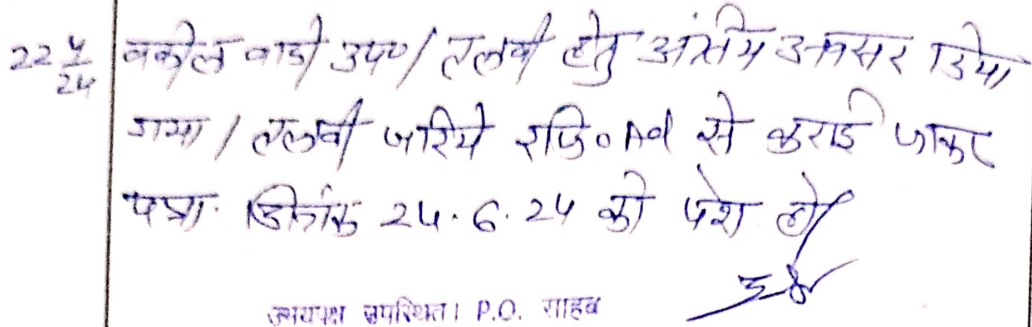 22 4/24 वकील वादी उप०/ तलबी हेतु अंतिम अवसर दिया
गया/ तलबी जरिये रजि० AD से कराई जाकर
पत्रा. दिनांक 24.6.24 को पेश हो/
उभयपक्ष उपस्थित। P.O. साहब